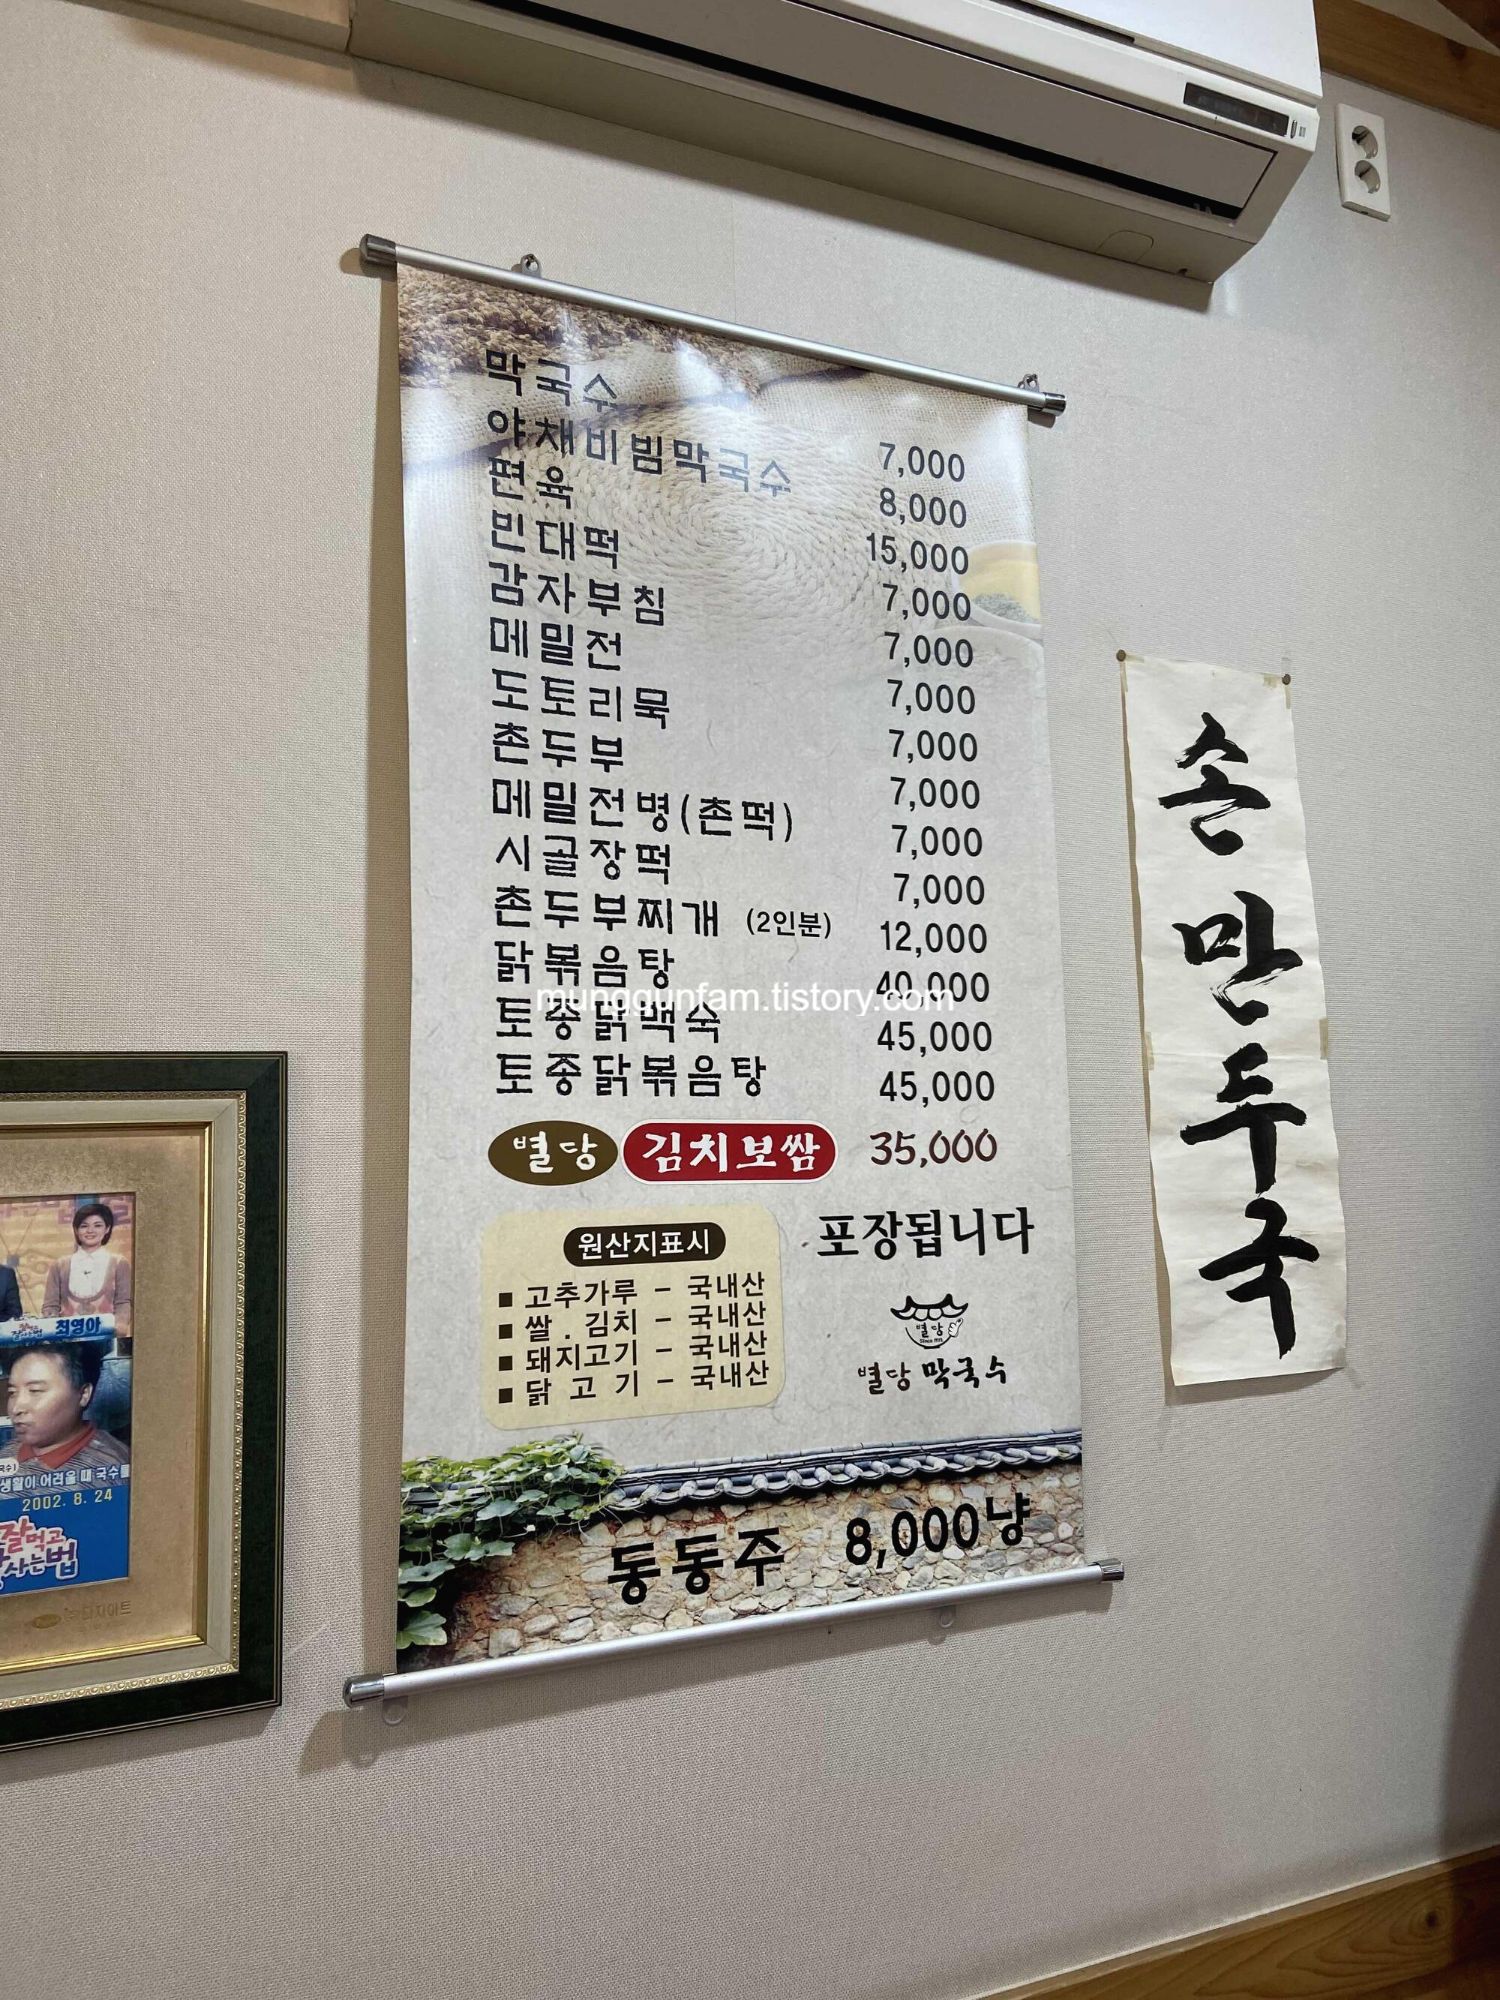 막국수 7,000
야채비빔막국수 8,000
편육 15,000
빈대떡 7,000
감자부침 7,000
메밀전 7,000
도토리묵 7,000
촌두부 7,000
메밀전병(촌떡) 7,000
시골장떡 7,000
촌두부찌개 (2인분) 12,000
닭볶음탕 40,000
munggunfam.tistory.com
토종닭백숙 45,000
토종닭볶음탕 45,000
별당 김치보쌈 35,000
포장됩니다
원산지표시
■ 고추가루 - 국내산
■ 쌀 . 김치 - 국내산
■ 돼지고기 - 국내산
■ 닭 고 기 - 국내산
별당
별당 막국수
동동주 8,000냥
손만두국
최영아
생활이 어려울 때 국수를
2002. 8. 24
잘먹고
사는법